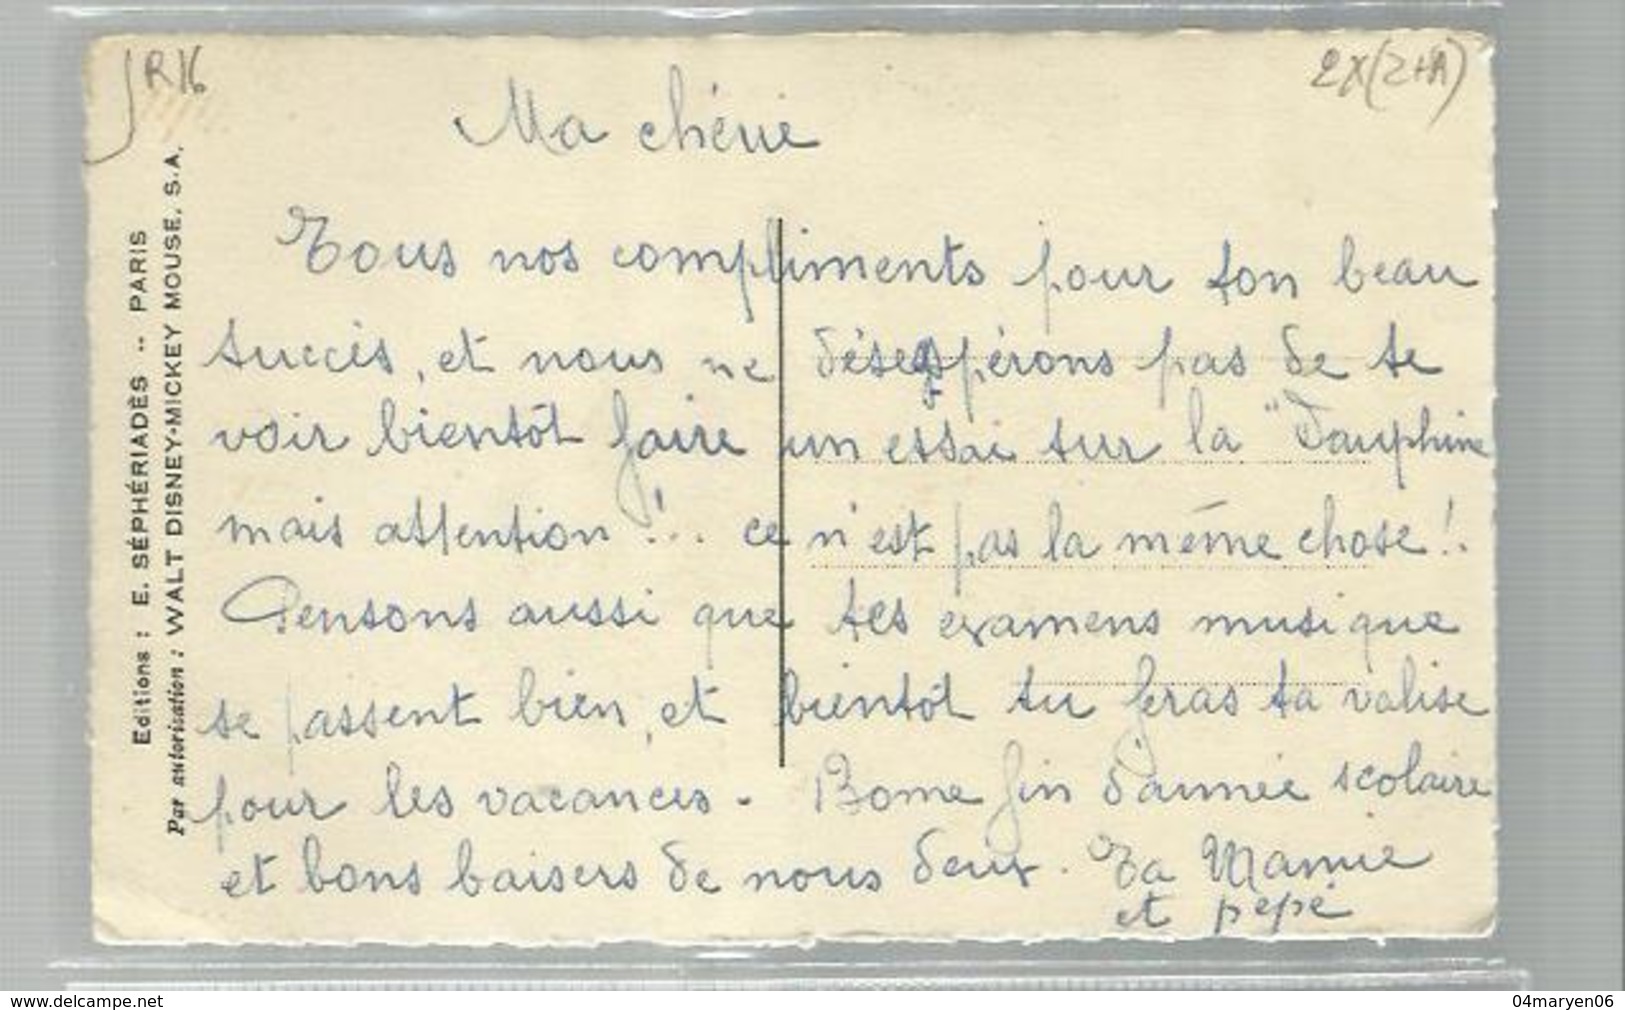 R16
2X(Z+A)
Ma chérie
Tous nos compliments pour ton beau
succès, et nous ne désespérons pas de te
voir bientôt faire un essai sur la "Dauphine
mais attention !... ce n'est pas la même chose !.
Pensons aussi que tes examens musique
se passent bien, et bientôt tu feras ta valise
pour les vacances - Bonne fin d'année scolaire
et bons baisers de nous deux. Ta Mamie
et pépé
Editions : E. SÉPHÉRIADÈS -- PARIS
Par autorisation : WALT DISNEY-MICKEY MOUSE, S.A.
www.delcampe.net
04maryen06